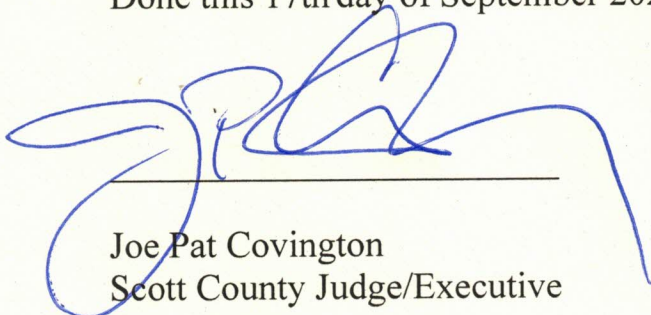 Done this 17th day of September 202
Joe Pat Covington
Scott County Judge/Executive